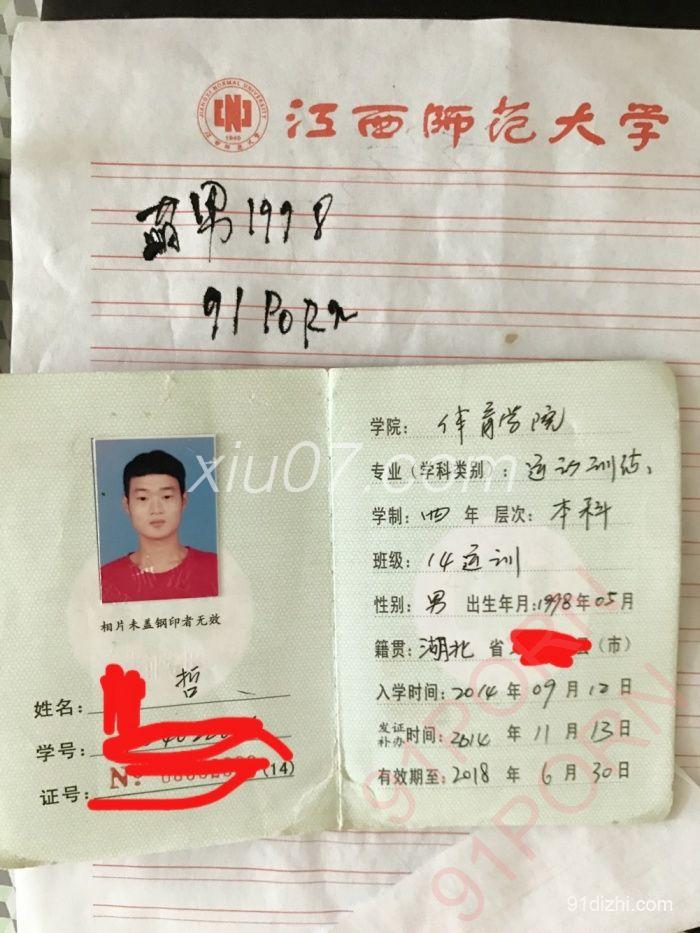 JIANGXI NORMAL UNIVERSITY
1940
江西师范大学
萌男1998
91PORN
xiu07.com
学院：体育学院
专业（学科类别）：运动训练
学制：四年 层次：本科
班级：14运训
性别：男 出生年月：1998年05月
籍贯：湖北省（市）
入学时间：2014年09月12日
发证补办时间：2014年11月13日
有效期至：2018年6月30日
相片未盖钢印者无效
姓名：哲
学号：
证号：№(14)
91PORN
91PORN
91dizhi.com